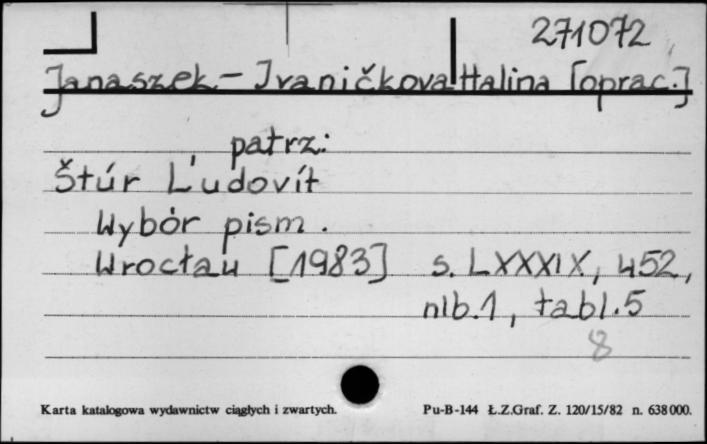 271072
Janaszek-Ivaničkova Halina [oprac.]
patrz:
Štúr Ľudovít
Wybór pism.
Wrocław [1983] s. LXXXIX, 452,
nlb.1, tabl.5
8
Karta katalogowa wydawnictw ciągłych i zwartych. Pu-B-144 Ł.Z.Graf. Z. 120/15/82 n. 638000.